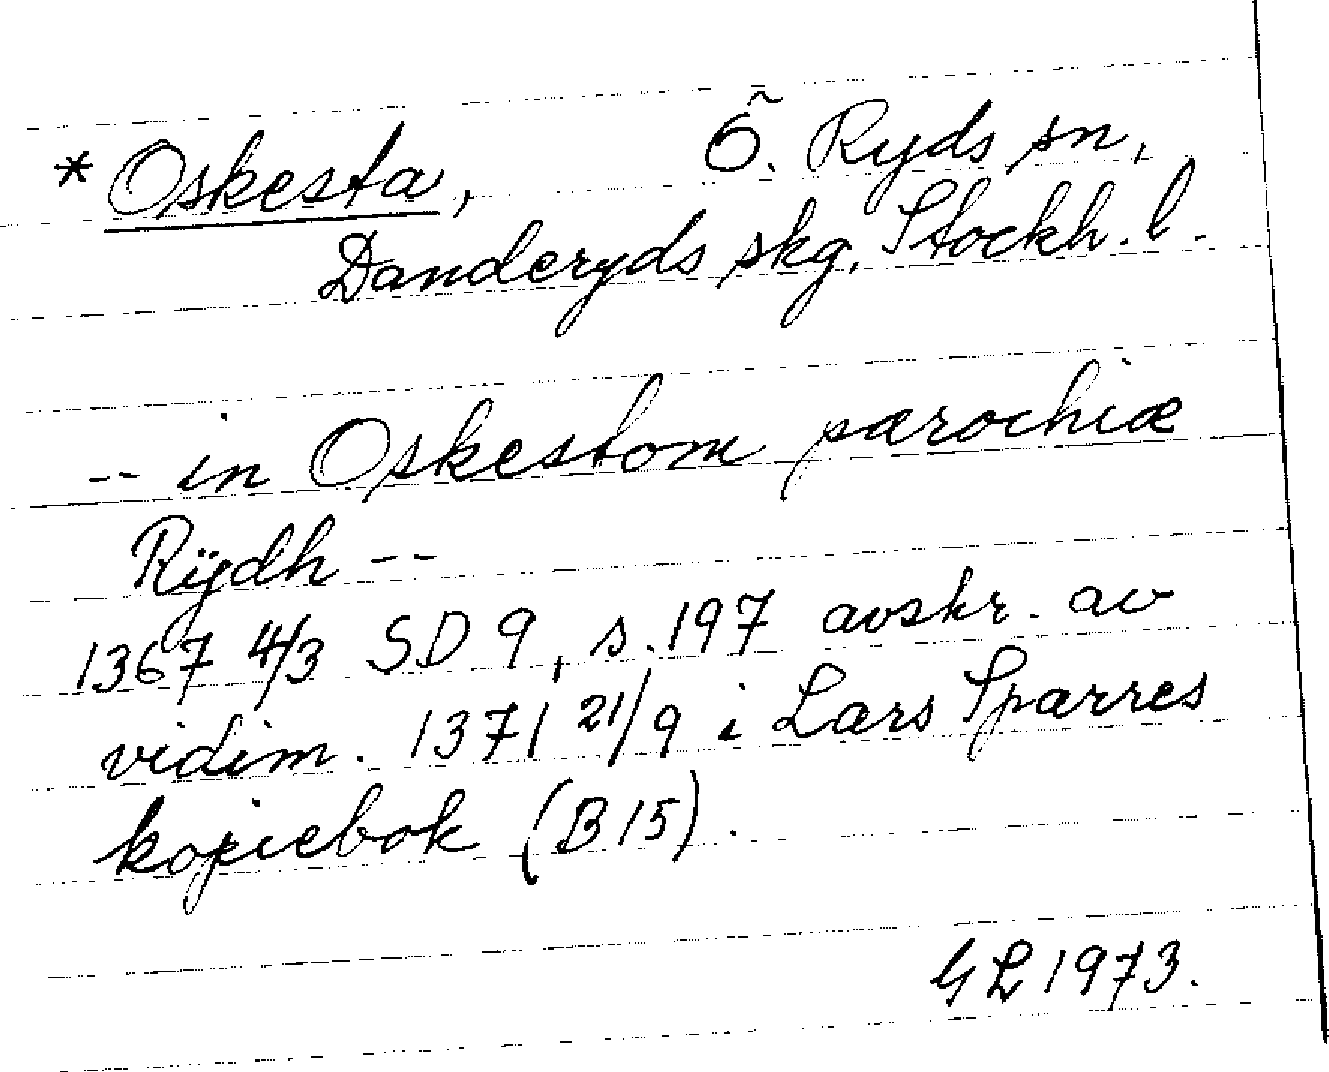 * Oskesta, Ö. Ryds sn,
Danderyds skg, Stockh. l.
-- in Oskestom parochiæ
Rÿdh --
1367 4/3 SD 9, s. 197 avskr. av
vidim. 1371 21/9 i Lars Sparres
kopiebok (B 15).
GL 1973.